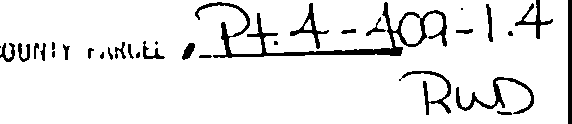 COUNTY PARCEL # Pt. 4-409-1.4
RWD